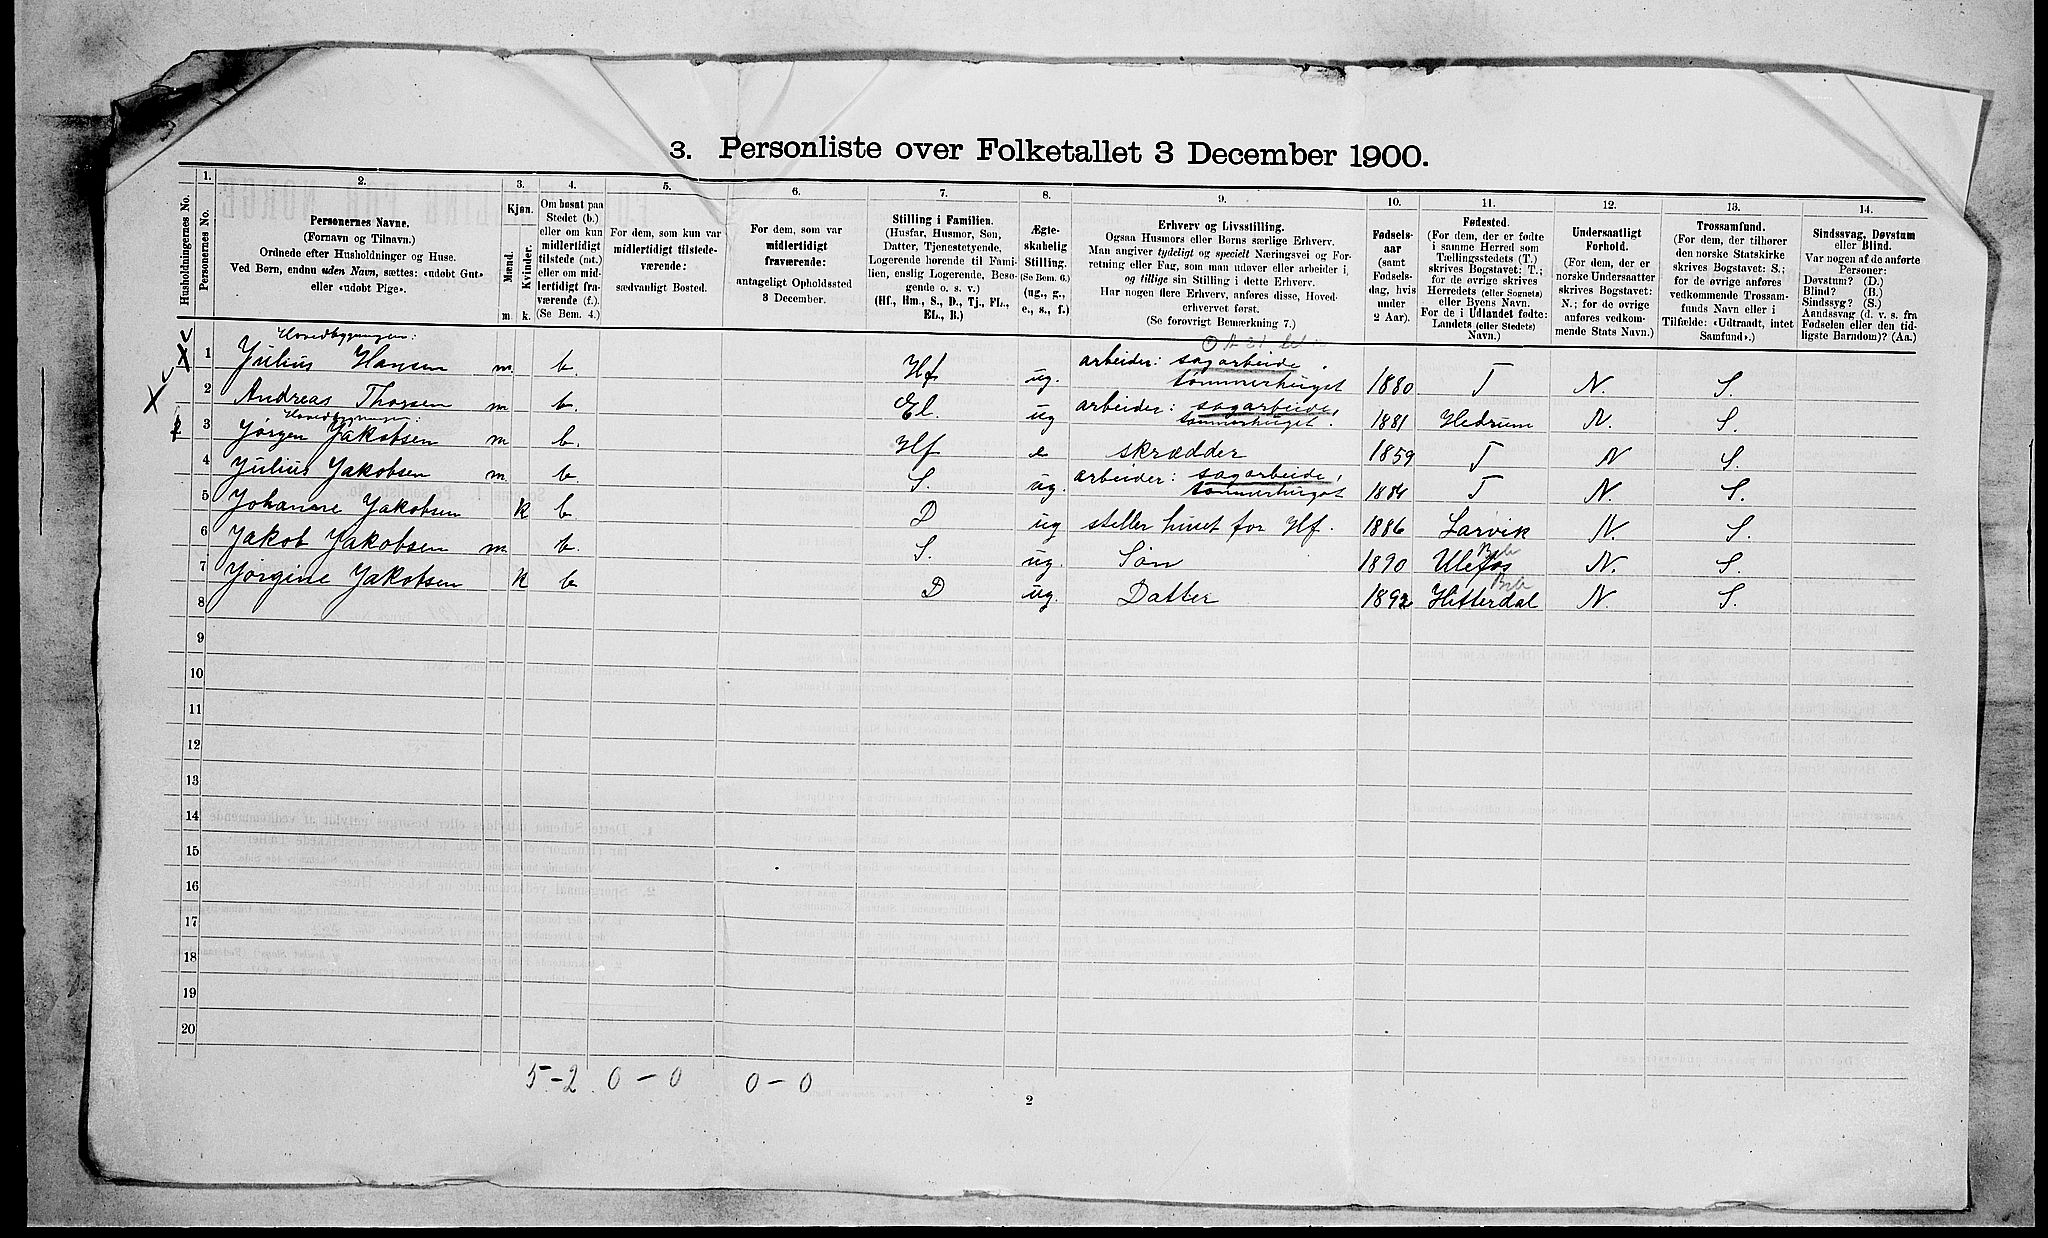 3. Personliste over Folketallet 3 December 1900.
Husholdningernes No.
1. Personernes No.
2. Personernes Navne.
(Fornavn og Tilnavn.)
Ordnede efter Husholdninger og Huse.
Ved Børn, endnu uden Navn, sættes: «udøbt Gut»
eller «udøbt Pige».
3. Kjøn.
Mænd. m.
Kvinder. k.
4. Om bosat paa
Stedet (b.)
eller om kun
midlertidigt
tilstede (mt.)
eller om mid-
lertidigt fra-
værende (f.).
(Se Bem. 4.)
5. For dem, som kun var
midlertidigt tilstede-
værende:
sædvanligt Bosted.
6. For dem, som var
midlertidigt
fraværende:
antageligt Opholdssted
3 December.
7. Stilling i Familien.
(Husfar, Husmor, Søn,
Datter, Tjenestetyende,
Logerende hørende til Fami-
lien, enslig Logerende, Besø-
gende o. s. v.)
(Hf., Hm., S., D., Tj., FL.,
EL., B.)
8. Ægte-
skabelig
Stilling.
(Se Bem. 6.)
(ug., g.,
e., s., f.)
9. Erhverv og Livsstilling.
Ogsaa Husmors eller Børns særlige Erhverv.
Man angiver tydeligt og specielt Næringsvei og For-
retning eller Fag, som man udøver eller arbeider i,
og tillige sin Stilling i dette Erhverv.
Har nogen flere Erhverv, anføres disse, Hoved-
erhvervet først.
(Se forøvrigt Bemærkning 7.)
10. Fødsels-
aar
(samt
Fødsels-
dag, hvis
under
2 Aar).
11. Fødested.
(For dem, der er fødte
i samme Herred som
Tællingsstedets (T.)
skrives Bogstavet: T.;
for de øvrige skrives
Herredets (eller Sognets)
eller Byens Navn.
For de i Udlandet fødte:
Landets (eller Stedets)
Navn.)
12. Undersaatligt
Forhold.
(For dem, der er
norske Undersaatter
skrives Bogstavet:
N.; for de øvrige
anføres vedkom-
mende Stats Navn.)
13. Trossamfund.
(For dem, der tilhører
den norske Statskirke
skrives Bogstavet: S.;
for de øvrige anføres
vedkommende Trossam-
funds Navn eller i
Tilfælde: «Udtraadt, intet
Samfund».)
14. Sindssvag, Døvstum
eller Blind.
Var nogen af de anførte
Personer:
Døvstum? (D.)
Blind? (B.)
Sindssyg? (S.)
Aandssvag (d. v. s. fra
Fødselen eller den tid-
ligste Barndom)? (Aa.)
Hovedbygningen:
1 Julius Hansen m b. Hf ug. arbeider: sagarbeide, tømmerhugst 1880 T N. S.
2 Andreas Thorsen m b. El. ug arbeider: sagarbeide, tømmerhugst. 1881 Hedrum N. S.
Hovedbygningen:
3 Jørgen Jakobsen m b. Hf e skrædder 1859 T N S.
4 Julius Jakobsen m b S. ug. arbeider: sagarbeide, tømmerhugst 1884 T N. S.
5 Johanne Jakobsen k b. D ug steller huset for Hf. 1886 Larvik N. S.
6 Jakob Jakobsen m b. S. ug. Søn 1890 Ulefos N. S.
7 Jørgine Jakobsen k b D ug. Datter 1892 Hitterdal N. S.
8
9
10
11
12
13
14
15
16
17
18
19
20
5-2 0-0 0-0
2